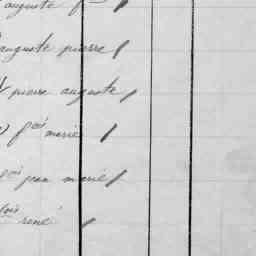 auguste f
auguste pierre /
pierre auguste /
fois marie /
fois jean marie /
fois rené /